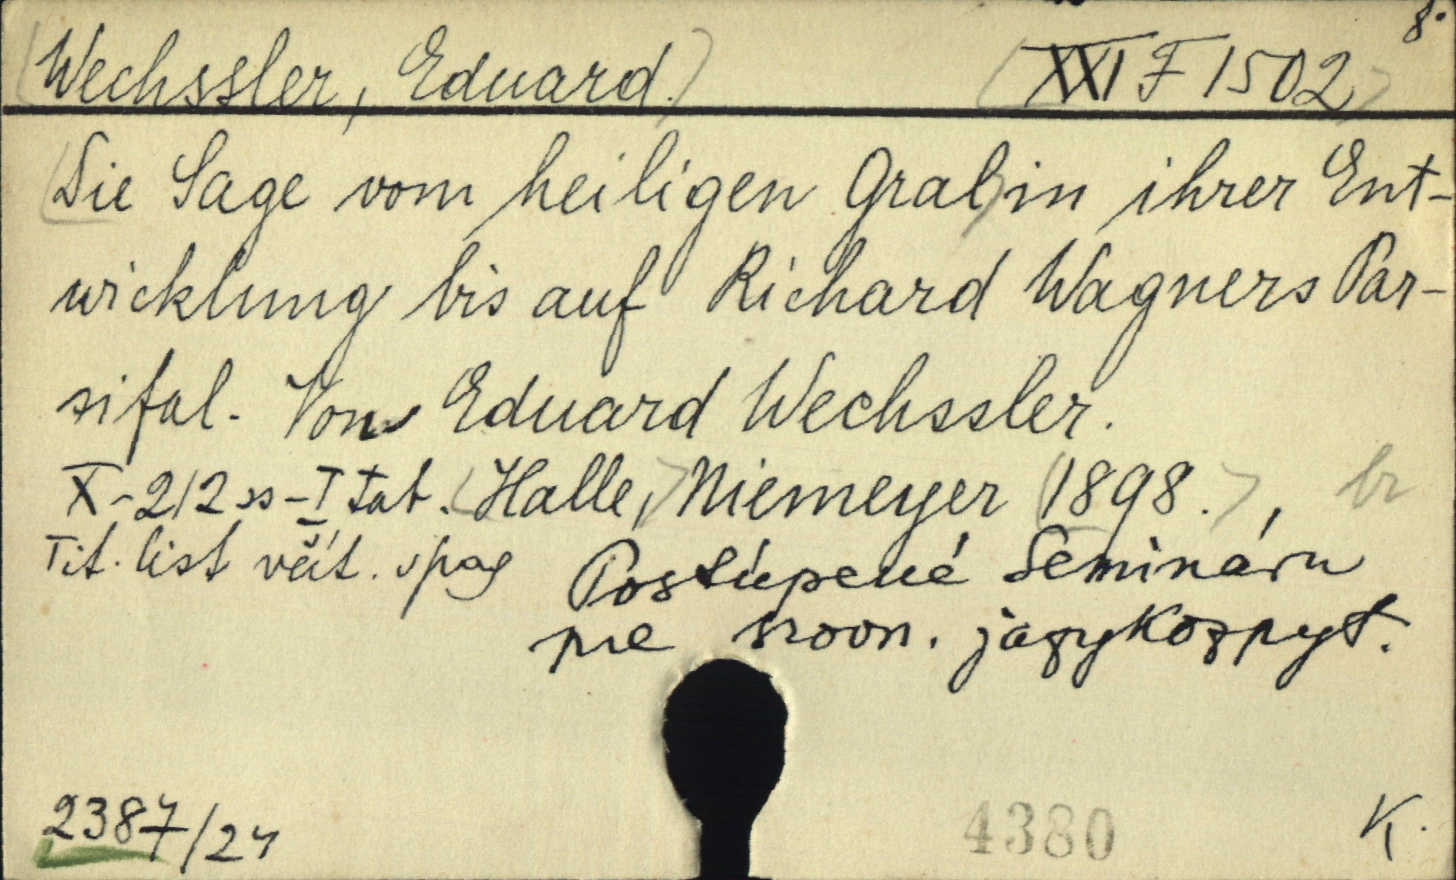 8°
(Wechssler, Eduard.) (XXI F 1502)
(Die Sage vom heiligen Gral) in ihrer Ent-
wicklung bis auf Richard Wagners Par-
sifal. Von Eduard Wechssler.
X-212 ss-I tab. (Halle,) Niemeyer (1898.), br
Tit. list včít. v pag
Postúpené Semináru
pre srovn. jazykozpyt.
2387/24 4380 K.